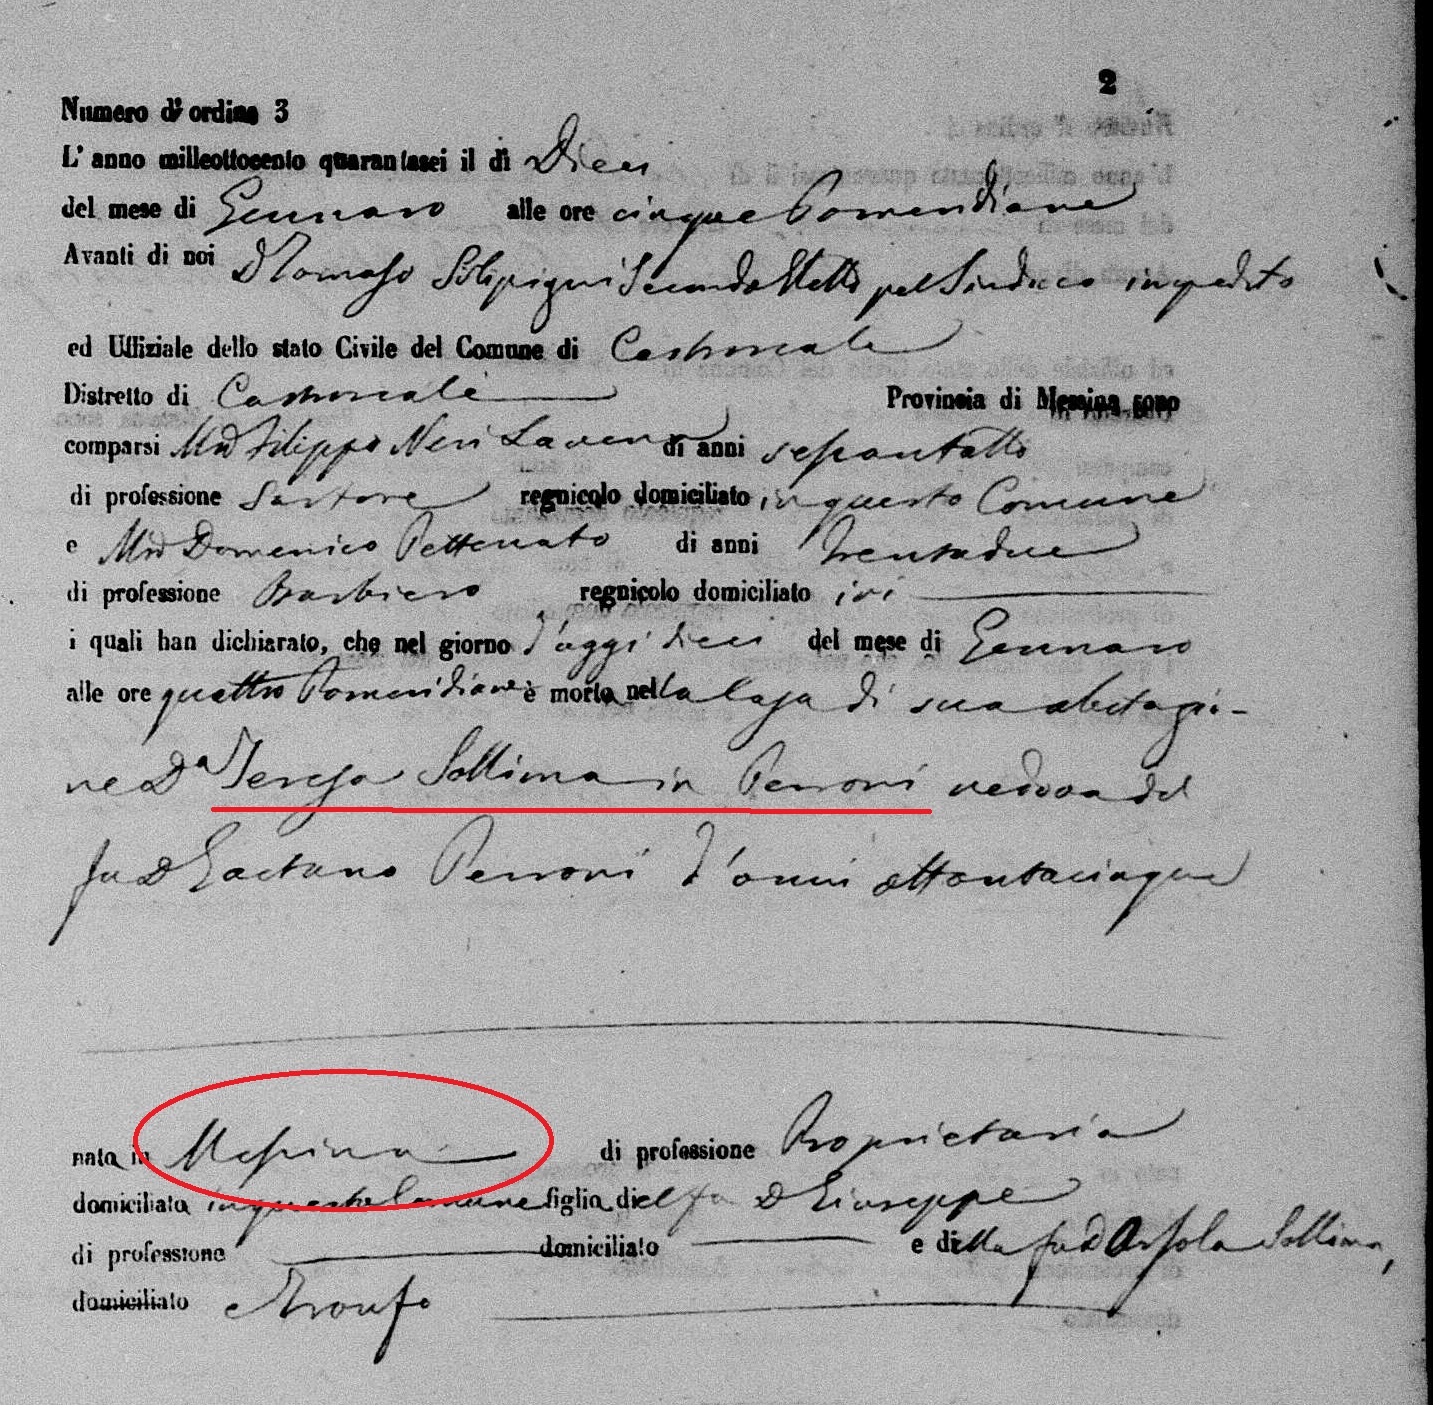 2
Numero d'ordine 3
L'anno milleottocento quarantasei il dì Dieci
del mese di Gennaro alle ore cinque Pomeridiane
Avanti di noi D Tomaso Secondo Eletto pel Sindaco impedito
ed Uffiziale dello stato Civile del Comune di Castroreale
Distretto di Castroreale Provincia di Messina sono
comparsi Mro Filippo Neri di anni settantotto
di professione Sartore regnicolo domiciliato in questo Comune
e Mro Domenico Pettenato di anni trentadue
di professione Barbiero regnicolo domiciliato ivi
i quali han dichiarato, che nel giorno d'oggi dieci del mese di Gennaro
alle ore quattro Pomeridiane è morta nella Casa di sua abitazio-
ne Da Teresa Sollima in Perroni vedova del
fu D Gaetano Perroni d'anni ottantacinque
nata in Messina di professione Proprietaria
domiciliata in questo Comune figlia del fu D Giuseppe
di professione domiciliato e della fu Da Orsola Sollima,
domiciliato